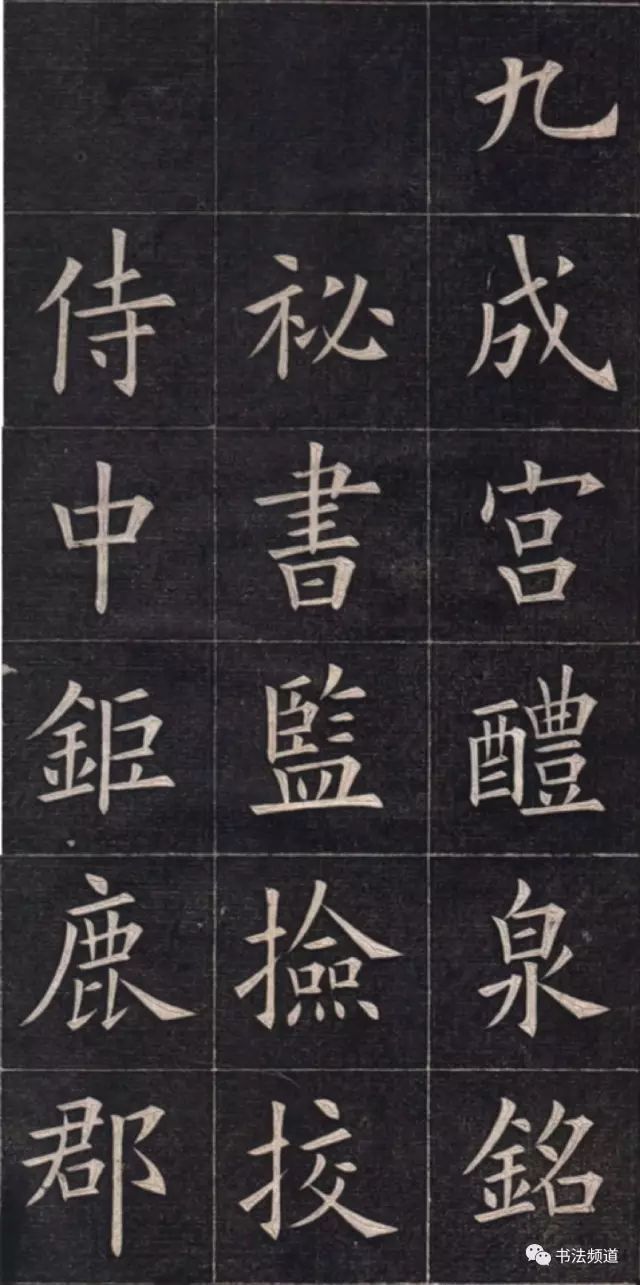 九成宫醴泉銘
祕書監撿挍
侍中鉅鹿郡
书法频道